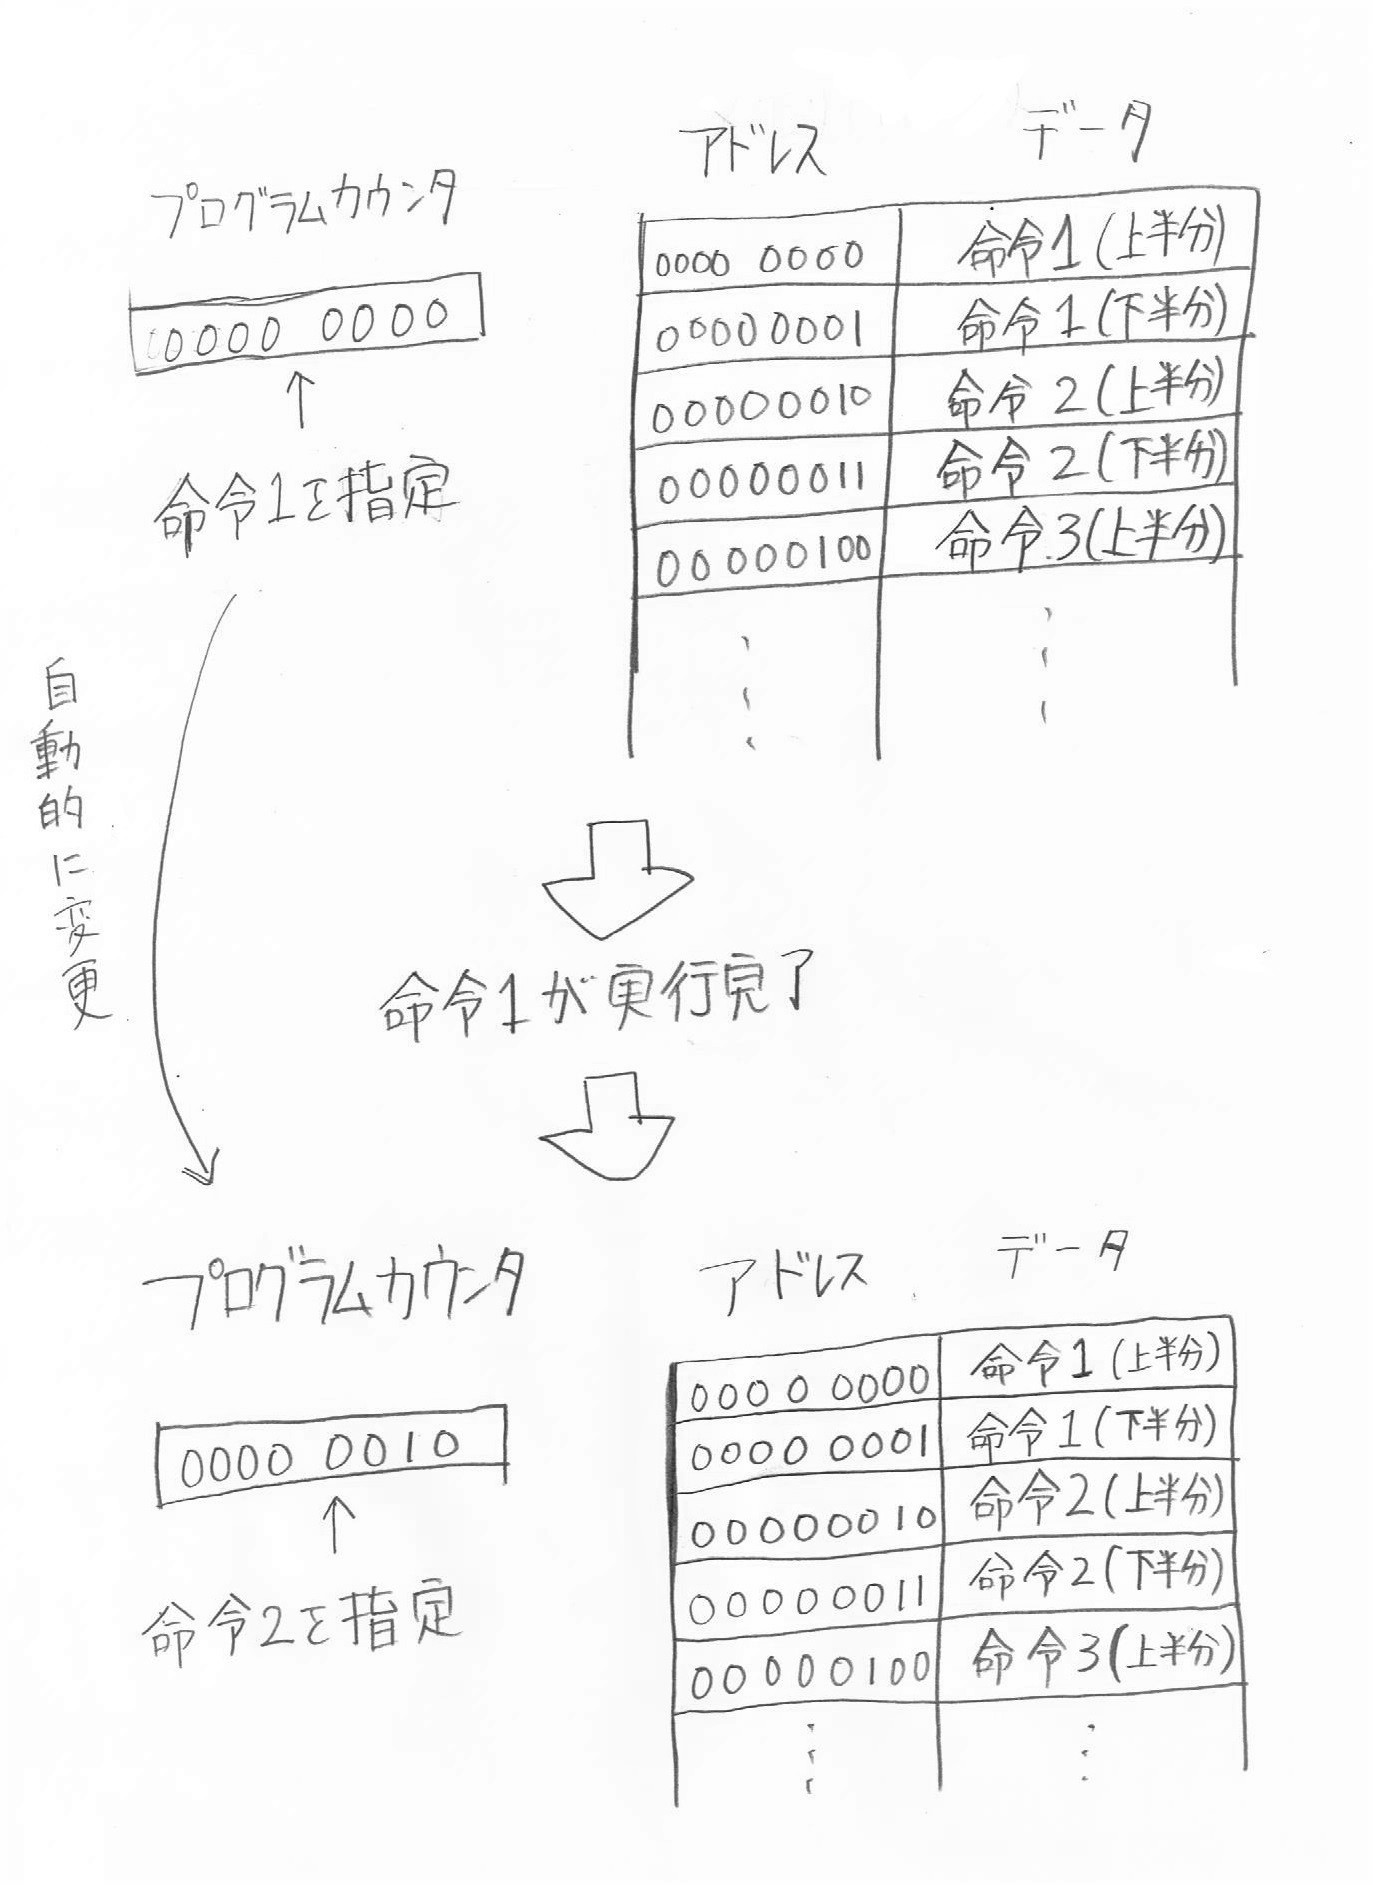 プログラムカウンタ
0000 0000
↑
命令1を指定
アドレス データ
0000 0000 命令1(上半分)
00000001 命令1(下半分)
00000010 命令2(上半分)
00000011 命令2(下半分)
00000100 命令3(上半分)
自動的に変更
命令1が実行完了
プログラムカウンタ
0000 0010
↑
命令2を指定
アドレス データ
0000 0000 命令1(上半分)
0000 0001 命令1(下半分)
00000010 命令2(上半分)
00000011 命令2(下半分)
00000100 命令3(上半分)